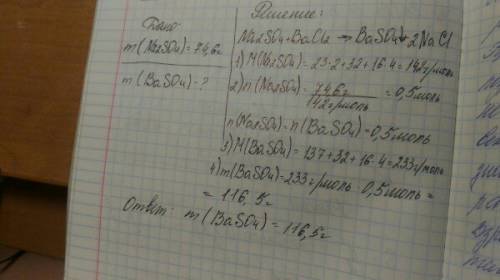 Дано
m(Na2SO4)=74,6г
m(BaSO4)=?
Решение:
Na2SO4+BaCl2 → BaSO4↓+2NaCl
1) M(Na2SO4)=23·2+32+16·4=142г/моль
2) n(Na2SO4)=74,6г/142г/моль=0,5моль
n(Na2SO4)=n(BaSO4)=0,5моль
3) M(BaSO4)=137+32+16·4=233г/моль
4) m(BaSO4)=233г/моль·0,5моль=
=116,5г
Ответ: m(BaSO4)=116,5г